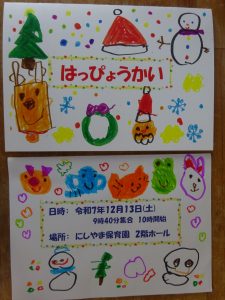 はっぴょうかい
日時: 令和7年12月13日(土)
9時40分集合 10時開始
場所: にしやま保育園 2階ホール